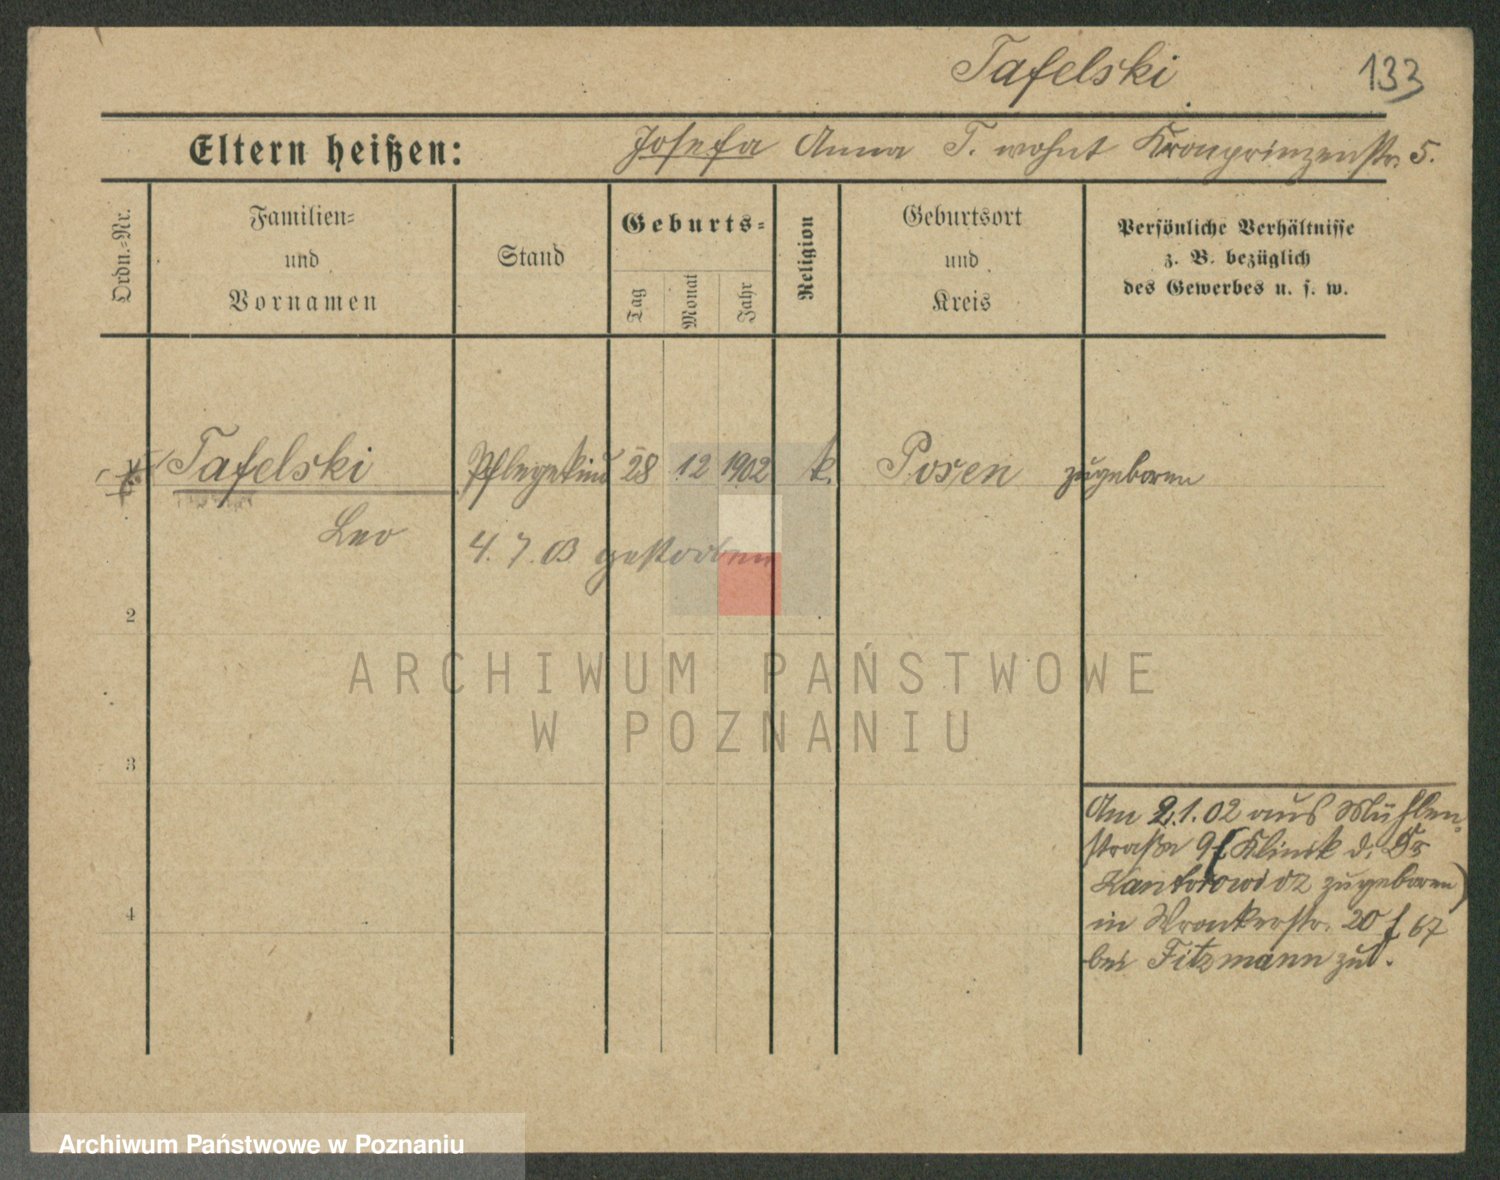 Tafelski 133
Eltern heißen: Josefa Anna T. wohnt Kronprinzenstr. 5.
Ordn.-Nr.
Familien-
und
Vornamen
Stand
Geburts-
Tag
Monat
Jahr
Religion
Geburtsort
und
Kreis
Persönliche Verhältnisse
z. B. bezüglich
des Gewerbes u. s. w.
Tafelski Pflegekind 28 12 1902 k. Posen zugeboren
Leo 4. 7. 03 gestorben
2
ARCHIWUM PAŃSTWOWE
W POZNANIU
3
Am 2.1.02 aus Mühlen-
straße 9 (Klinik d. Dr
Kantorowicz zugeboren)
4
in Wronkerstr. 20 f 67
bei Fitzmann zu.
Archiwum Państwowe w Poznaniu